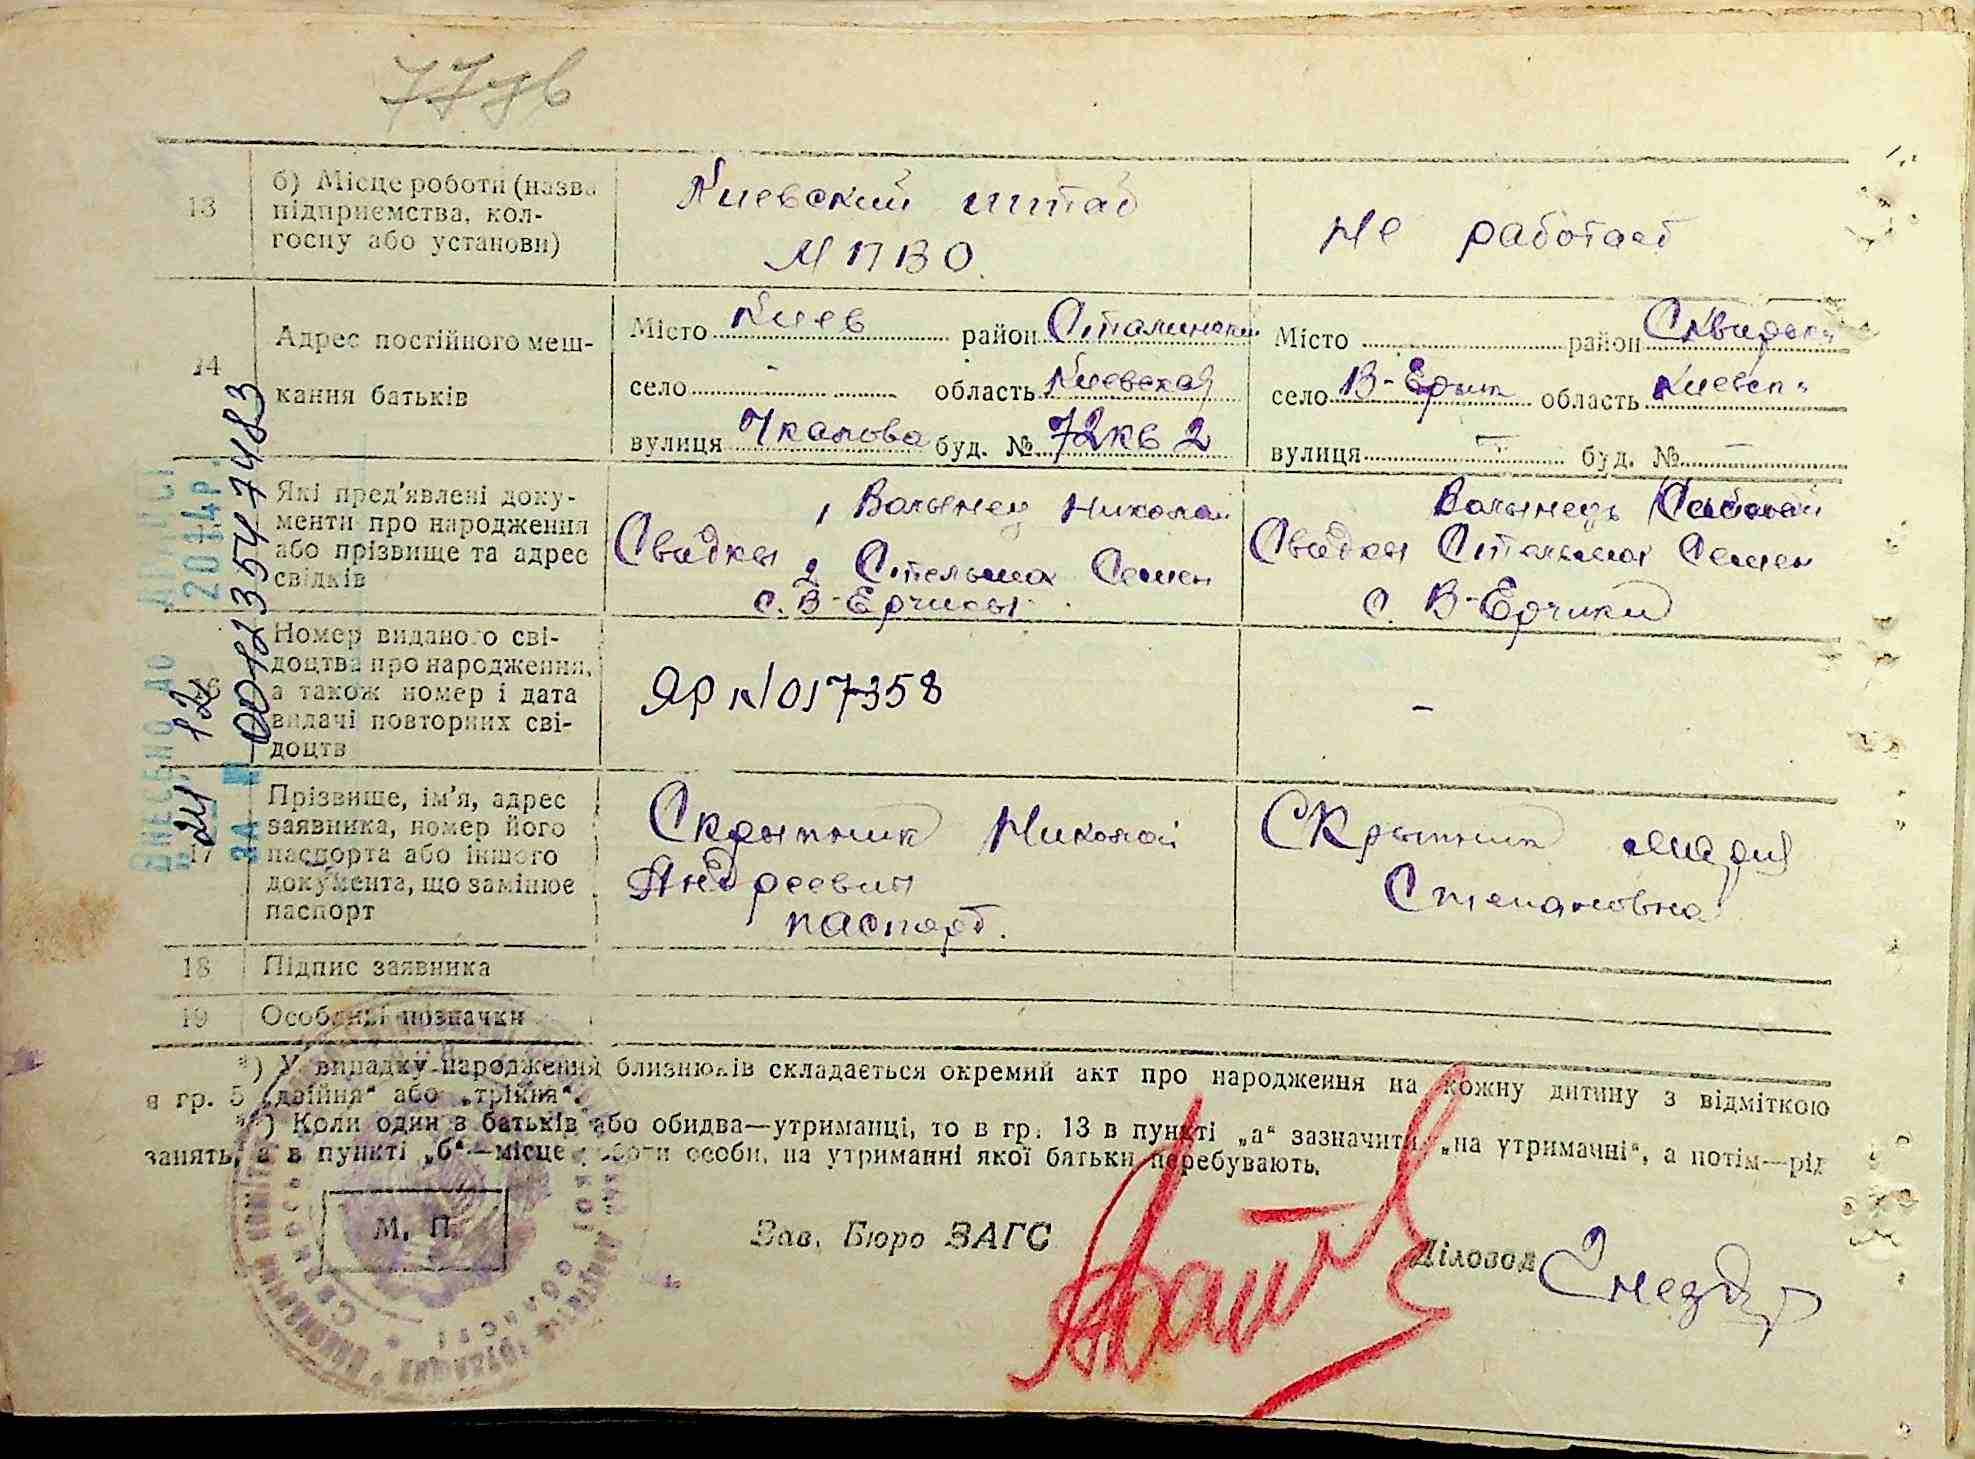 13
б) Місце роботи (назва
підприємства, кол-
госпу або установи)
Киевский штаб
МПВО.
Не работает
14
Адрес постійного меш-
кання батьків
Місто Киев район Сталинский
село - область Киевская
вулиця Чкалова буд. № 72 кв 2
Місто район Сквирск
село В-Ерчик область Киевск
вулиця - буд. № -
Які пред'явлені доку-
менти про народження
або прізвище та адрес
свідків
1 Волынец Николай
Свидетели 2 Стельмах Семен
с. В-Ерчики
Волынець
Стельмах Семен
с. В-Ерчики
16
Номер виданого сві-
доцтва про народження,
а також номер і дата
видачі повторних сві-
доцтв
ЯР №017358
-
17
Прізвище, ім'я, адрес
заявника, номер його
паспорта або іншого
документа, що замінює
паспорт
Скрыпник Николай
Андреевич
паспорт.
Скрыпник Мария
Степановна
18
Підпис заявника
19
Особливі позначки
*) У випадку народження близнюків складається окремий акт про народження на кожну дитину з відміткою
в гр. 5 „двійня“ або „трійня“.
**) Коли один з батьків або обидва—утриманці, то в гр. 13 в пункті „а“ зазначити „на утриманні“, а потім—рід
занять, а в пункті „б“—місце роботи особи, на утриманні якої батьки перебувають.
М. П.
Зав. Бюро ЗАГС
Діловод
ВНЕСЕНО ДО
24 12 20 р.
ЗА № 00123547483